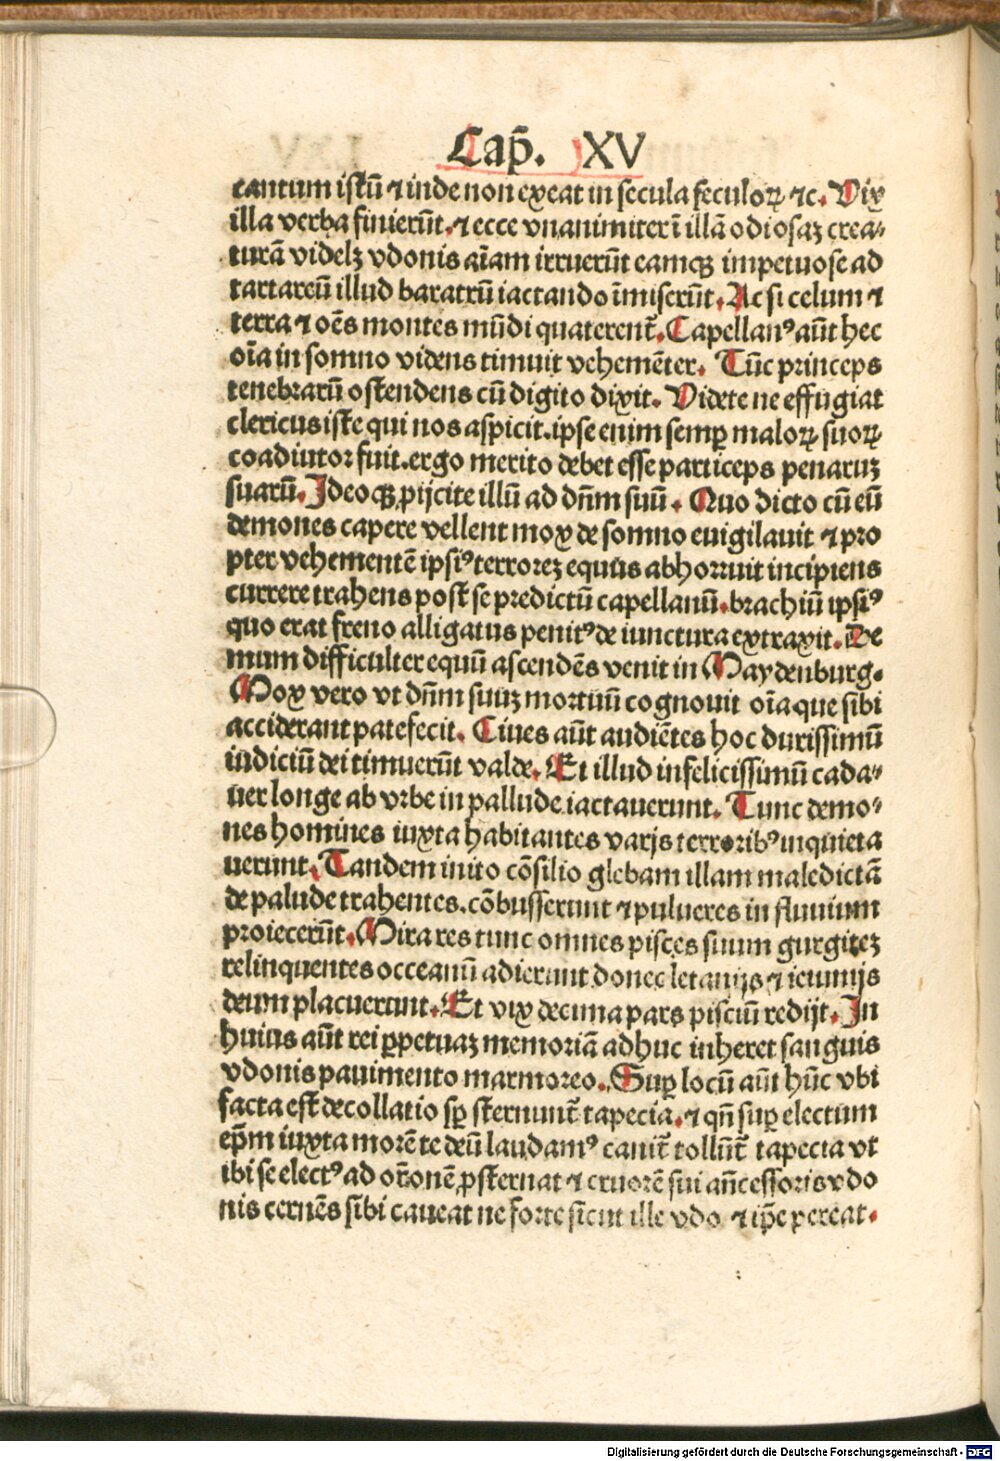 Cap̄. XV
cantum istū ⁊ inde non exeat in secula seculoꝝ ⁊c. Vix
illa verba finierūt. ⁊ ecce vnanimiter ī illā odiosaꝫ crea⸗
turā videlꝫ vdonis aīam irruerūt eamqꝫ impetuose ad
tartareū illud baratrū iactando īmiserūt. Ac si celum ⁊
terra ⁊ oēs montes mūdi quaterent̄. Capellanꝰ aūt hec
oīa in somno videns timuit vehemēter. Tūc princeps
tenebrarū ostendens cū digito dixit. Videte ne effugiat
clericus iste qui nos aspicit. ipse enim semꝑ maloꝝ suoꝝ
coadiutor fuit. ergo merito debet esse particeps penaruꝫ
suarū. Ideoqꝫ ꝓijcite illū ad dn̄m suū. Quo dicto cū eū
demones capere vellent mox de somno euigilauit ⁊ pro
pter vehementē ipsiꝰ terrorez equus abhorruit incipiens
currere trahens post se predictū capellanū. brachiū ipsiꝰ
quo erat freno alligatus penitꝰ de iunctura extraxit. De
mum difficulter equū ascendēs venit in Maydenburg.
Mox vero vt dn̄m suuꝫ mortuū cognouit oīa que sibi
acciderant patefecit. Ciues aūt audiētes hoc durissimū
iudiciū dei timuerūt valde. Et illud infelicissimū cada⸗
uer longe ab vrbe in pallude iactauerunt. Tunc demo⸗
nes homines iuxta habitantes varijs terroribꝰ inquieta
uerunt. Tandem inito cōsilio glebam illam maledictā
de palude trahentes. cōbusserunt ⁊ pulueres in fluuium
proiecerūt. Mira res tunc omnes pisces suum gurgitez
relinquentes occeanū adierunt donec letanijs ⁊ ieiunijs
deum placuerunt. Et vix decima pars pisciū redijt. In
huius aūt rei ꝑpetuaꝫ memoriā adhuc inheret sanguis
vdonis pauimento marmoreo. Suꝑ locū aūt hūc vbi
facta est decollatio sꝑ sternunt̄ tapecia. ⁊ qn̄ suꝑ electum
ep̄m iuxta morē te deū laudamꝰ canit̄ tollūt̄ tapecia vt
ibi se electꝰ ad or̄onē ꝓsternat ⁊ cruorē sui an̄cessoris vdo
nis cernēs sibi caueat ne forte sicut ille vdo ⁊ ip̄e pereat.
Digitalisierung gefördert durch die Deutsche Forschungsgemeinschaft - DFG